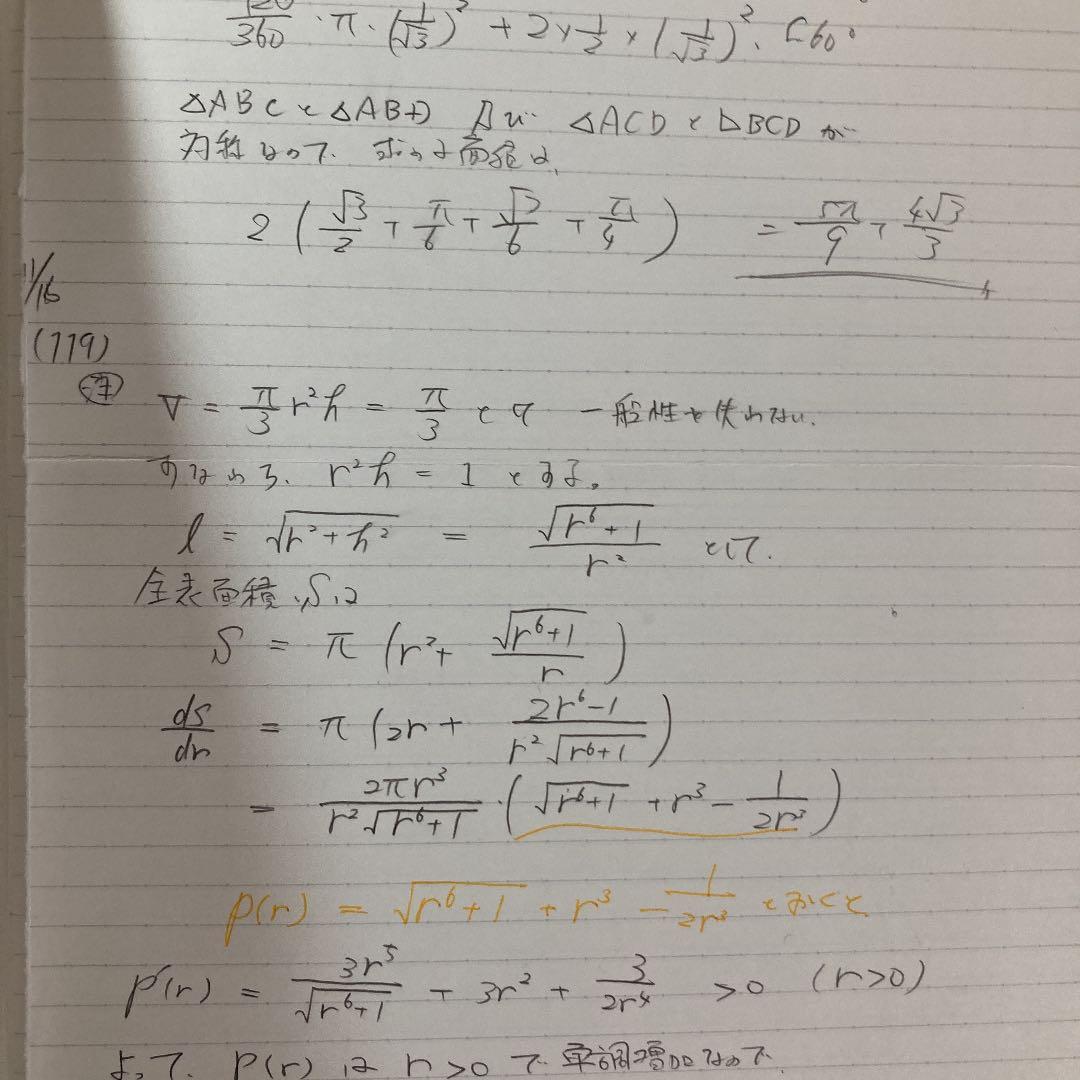 120/360 · π · (1/√3)² + 2 × 1/2 × (1/√3)² · 60°
△ABCと△ABD △ACDと△BCDが
対称なので、求める面積は、
2 ( √3/2 + π/6 + √3/6 + π/4 ) = 5π/9 + 4√3/3
11/16
(119)
V = π/3 r²h = π/3 として 一般性を失わない.
すなわち、r²h = 1 とする。
l = √(r²+h²) = √(r⁶+1)/r² として.
全表面積 S は
S = π (r² + √(r⁶+1)/r)
ds/dr = π (2r + (2r⁶-1)/(r²√(r⁶+1)))
= 2πr³/(r²√(r⁶+1)) · (√(r⁶+1) + r³ - 1/(2r³))
p(r) = √(r⁶+1) + r³ - 1/(2r³) とおくと
p'(r) = 3r⁵/√(r⁶+1) + 3r² + 3/(2r⁴) > 0 (r>0)
よって、p(r) は r>0 で 単調増加なので、